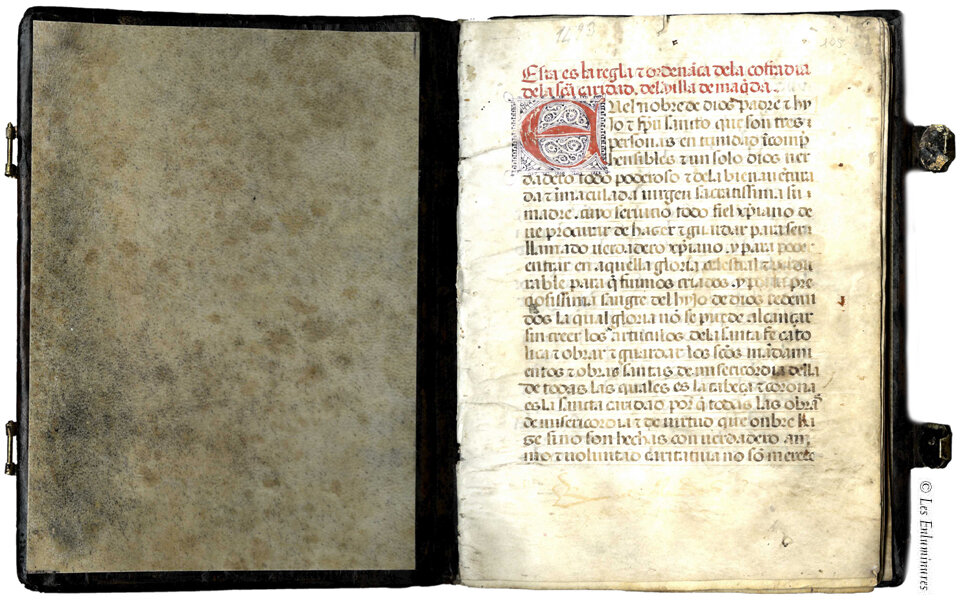 1483
105
Esta es la regla ⁊ ordenãça dela cofradia
dela scã caridad, dela villa de maq̃da
En el nõbre de dios padre ⁊ hy
jo ⁊ spũ santo que son tres
personas en trinidad ĩcomp̃
hensibles ⁊ un solo dios ver
dadero todo poderoso ⁊ dela bienauẽtura
da ⁊ ĩmaculada uirgen sacratissima su
madre. cuyo seruicio todo fiel xp̃iano de
ue procurar de hazer ⁊ guardar para ser
llamado uerdadero xp̃iano. y para poder
entrar en aquella gloria celestial
rable para q̃ fuimos criados. y por la pre
çiosissima sangre del hyjo de dios redemi
dos la qual gloria nõ se puede alcançar
sin creer los articulos dela santa fe cato
lica ⁊ obrar ⁊ guardar los scõs mãdami
entos ⁊ obras santas de misericordia della
de todas las quales es la cabeça ⁊ corona
es la sancta caridad por q̃ todas las obras
de misericordia ⁊ de virtud que onbre ha
ge si no son hechas con uerdadero ani
mo ⁊ uoluntad caritatiua no sõ merece
© Les Enluminures